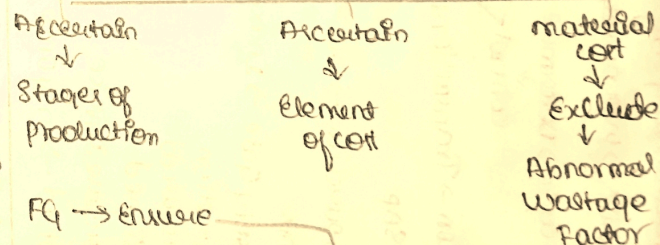 Ascertain
↓
Stages of
Production
Ascertain
↓
Element
of cost
material
cost
↓
Exclude
↓
Abnormal
Wastage
Factor
FG → Ensure